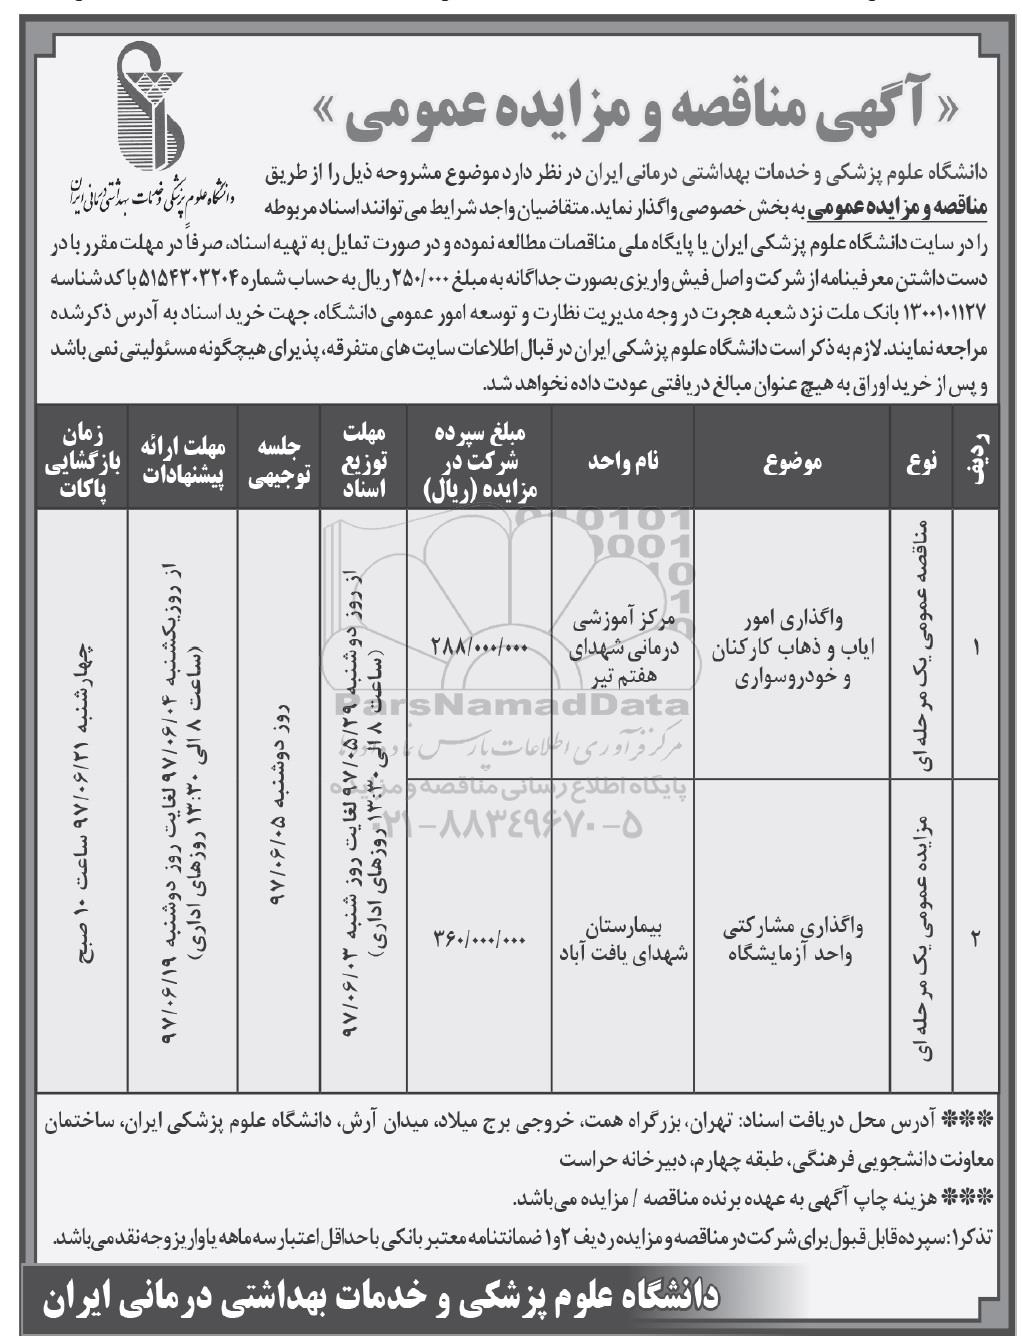 « آگهی مناقصه و مزایده عمومی »
دانشگاه علوم پزشکی و خدمات بهداشتی درمانی ایران
دانشگاه علوم پزشکی و خدمات بهداشتی درمانی ایران در نظر دارد موضوع مشروحه ذیل را از طریق
مناقصه و مزایده عمومی به بخش خصوصی واگذار نماید. متقاضیان واجد شرایط می توانند اسناد مربوطه
را در سایت دانشگاه علوم پزشکی ایران یا پایگاه ملی مناقصات مطالعه نموده و در صورت تمایل به تهیه اسناد، صرفاً در مهلت مقرر با در
دست داشتن معرفینامه از شرکت و اصل فیش واریزی بصورت جداگانه به مبلغ ۲۵۰/۰۰۰ ریال به حساب شماره ۵۱۵۴۳۰۳۲۰۴ با کد شناسه
۱۳۰۰۱۰۱۱۲۷ بانک ملت نزد شعبه هجرت در وجه مدیریت نظارت و توسعه امور عمومی دانشگاه، جهت خرید اسناد به آدرس ذکر شده
مراجعه نمایند. لازم به ذکر است دانشگاه علوم پزشکی ایران در قبال اطلاعات سایت های متفرقه، پذیرای هیچگونه مسئولیتی نمی باشد
و پس از خرید اوراق به هیچ عنوان مبالغ دریافتی عودت داده نخواهد شد.
ردیف
نوع
موضوع
نام واحد
مبلغ سپرده
شرکت در
مزایده (ریال)
مهلت
توزیع
اسناد
جلسه
توجیهی
مهلت ارائه
پیشنهادات
زمان
بازگشایی
پاکات
۱
مناقصه عمومی یک مرحله ای
واگذاری امور
ایاب و ذهاب کارکنان
و خودروسواری
مرکز آموزشی
درمانی شهدای
هفتم تیر
۲۸۸/۰۰۰/۰۰۰
از روز دوشنبه ۹۷/۰۵/۲۹ لغایت روز شنبه ۹۷/۰۶/۰۳
(ساعت ۸ الی ۱۳:۳۰ روزهای اداری)
روز دوشنبه ۹۷/۰۶/۰۵
از روز یکشنبه ۹۷/۰۶/۰۴ لغایت روز دوشنبه ۹۷/۰۶/۱۹
(ساعت ۸ الی ۱۳:۳۰ روزهای اداری)
چهارشنبه ۹۷/۰۶/۲۱ ساعت ۱۰ صبح
۲
مزایده عمومی یک مرحله ای
واگذاری مشارکتی
واحد آزمایشگاه
بیمارستان
شهدای یافت آباد
۳۶۰/۰۰۰/۰۰۰
ParsNamadData
مرکز فرآوری اطلاعات پارس نماد داده ها
پایگاه اطلاع رسانی مناقصه و مزایده
۰۲۱-۸۸۳۴۹۶۷۰-۵
*** آدرس محل دریافت اسناد: تهران، بزرگراه همت، خروجی برج میلاد، میدان آرش، دانشگاه علوم پزشکی ایران، ساختمان
معاونت دانشجویی فرهنگی، طبقه چهارم، دبیرخانه حراست
*** هزینه چاپ آگهی به عهده برنده مناقصه / مزایده می باشد.
تذکر۱: سپرده قابل قبول برای شرکت در مناقصه و مزایده ردیف ۲و۱ ضمانتنامه معتبر بانکی با حداقل اعتبار سه ماهه یا واریز وجه نقد می باشد.
دانشگاه علوم پزشکی و خدمات بهداشتی درمانی ایران